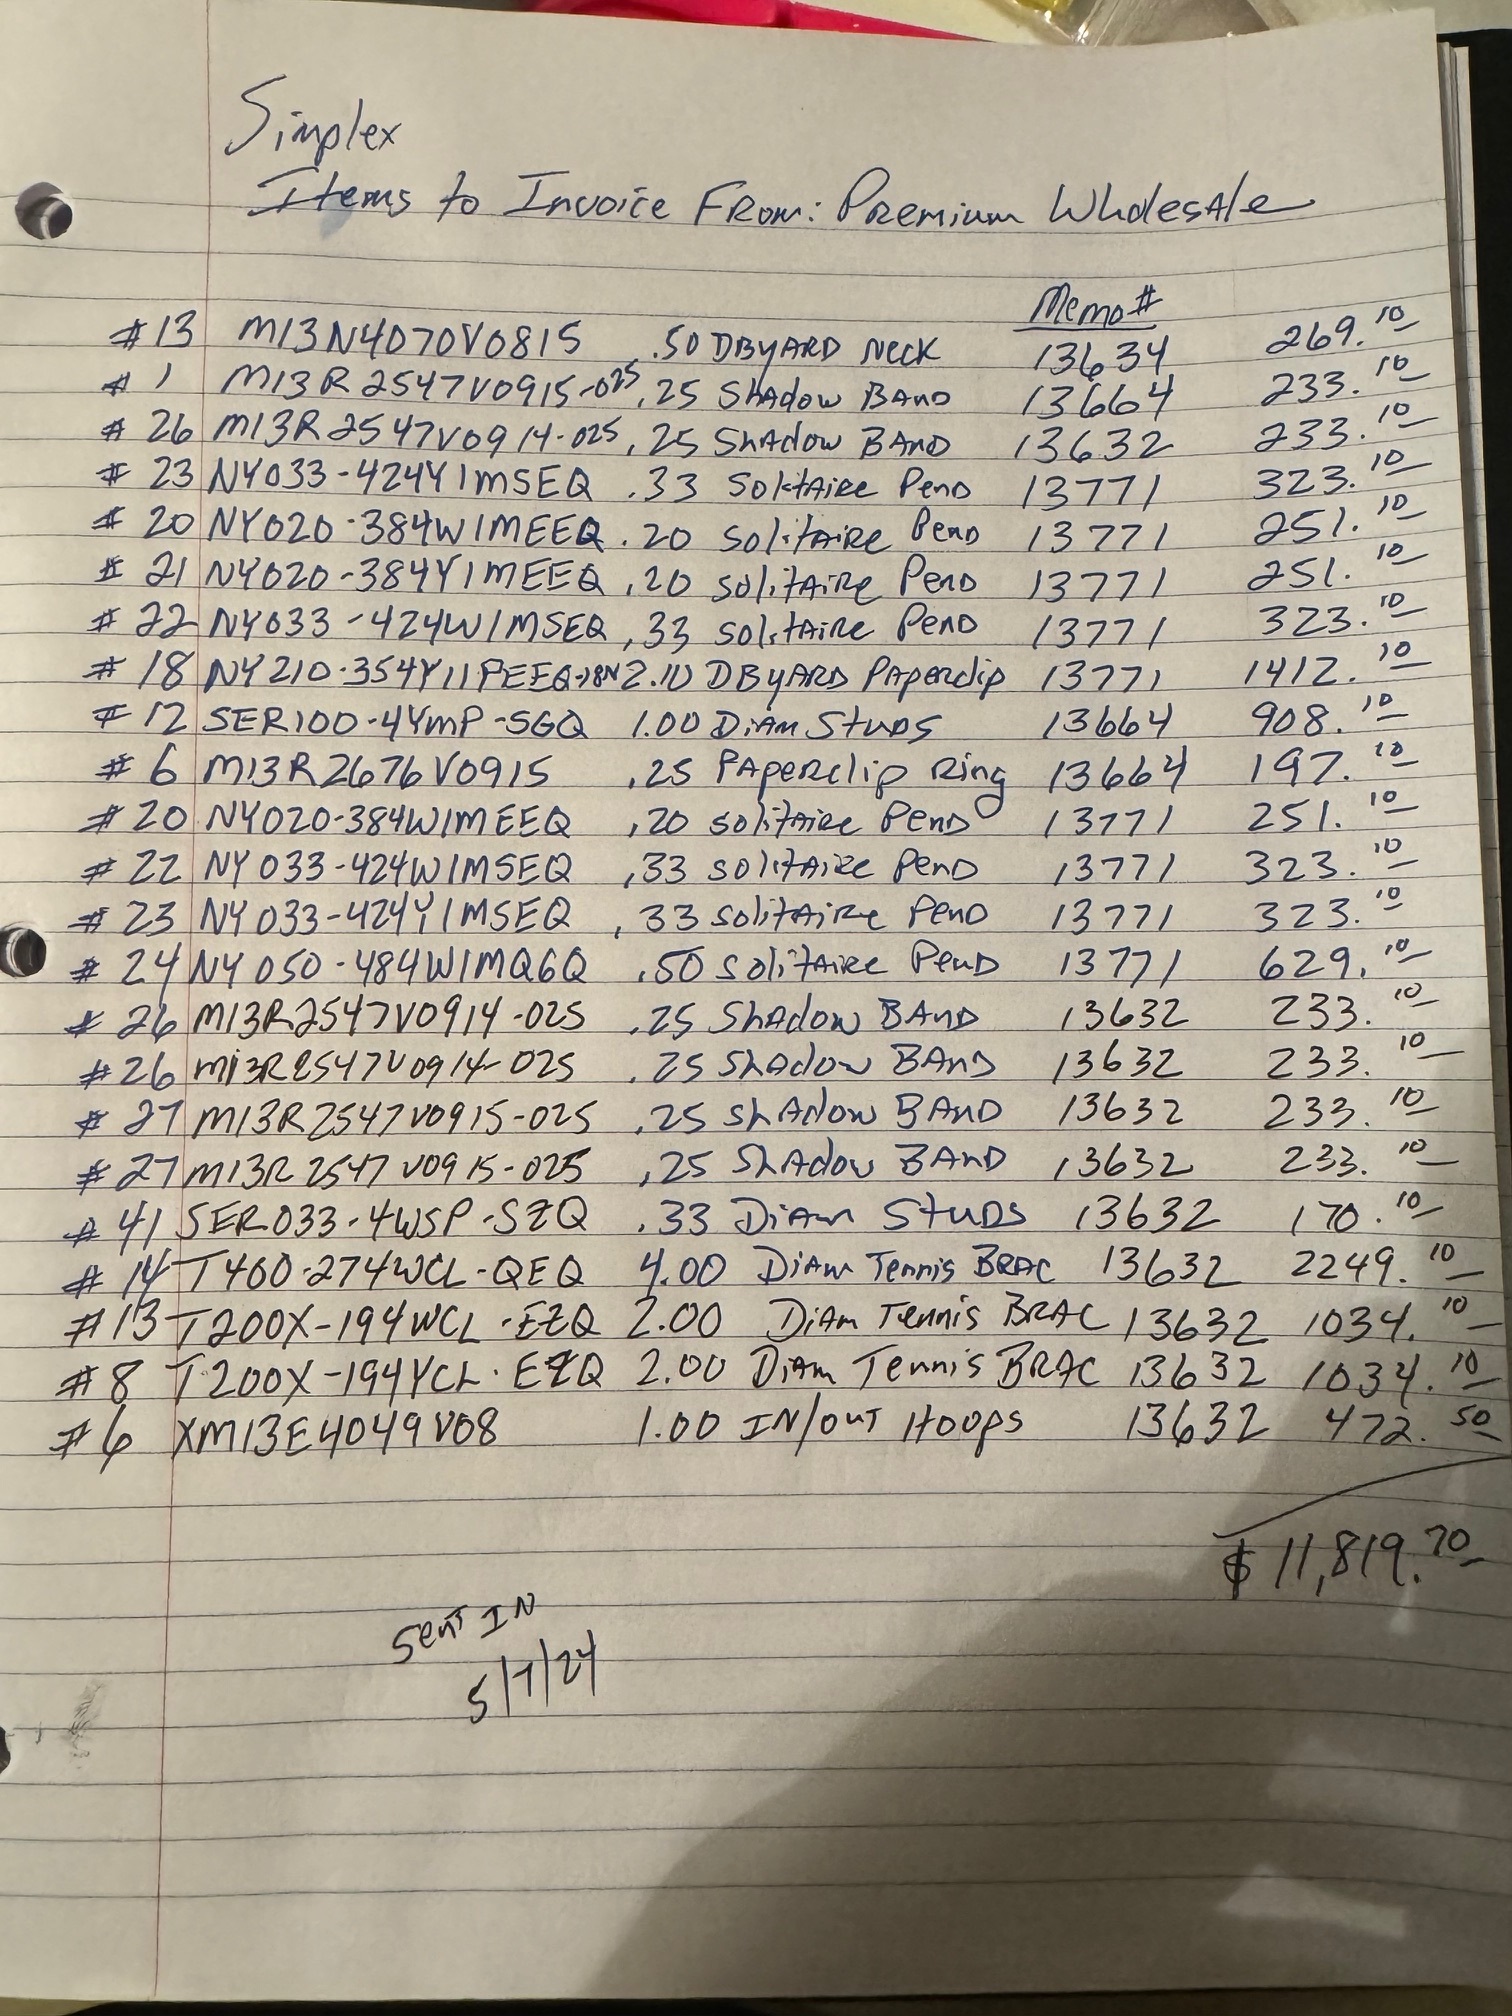 Simplex
Items to Invoice From: Premium Wholesale
Memo#
#13 M13N4070V0815 .50 DBYARD NECK 13634 269.10
#1 M13R2547V0915-025 .25 Shadow BAND 13664 233.10
#26 M13R2547V0914-025 .25 Shadow BAND 13632 233.10
#23 NY033-424Y1MSEQ .33 Solitaire Pend 13771 323.10
#20 NY020-384W1MEEQ .20 Solitaire Pend 13771 251.10
#21 NY020-384Y1MEEQ .20 Solitaire Pend 13771 251.10
#22 NY033-424W1MSEQ .33 Solitaire Pend 13771 323.10
#18 NY210-354Y11PEEQ-18N 2.10 DBYARD Paperclip 13771 1412.10
#12 SER100-4YMP-SGQ 1.00 Diam Studs 13664 908.10
#6 M13R2676V0915 .25 Paperclip Ring 13664 197.10
#20 NY020-384W1MEEQ .20 Solitaire Pend 13771 251.10
#22 NY033-424W1MSEQ .33 Solitaire Pend 13771 323.10
#23 NY033-424Y1MSEQ .33 Solitaire Pend 13771 323.10
#24 NY050-484W1MQ6Q .50 Solitaire Pend 13771 629.10
#26 M13R2547V0914-025 .25 Shadow BAND 13632 233.10
#26 M13R2547V0914-025 .25 Shadow BAND 13632 233.10
#27 M13R2547V0915-025 .25 Shadow BAND 13632 233.10
#27 M13R2547V0915-025 .25 Shadow BAND 13632 233.10
#41 SER033-4WSP-SZQ .33 Diam Studs 13632 170.10
#14 T400-274WCL-QEQ 4.00 Diam Tennis BRAC 13632 2249.10
#13 T200X-194WCL-EZQ 2.00 Diam Tennis BRAC 13632 1034.10
#8 T200X-194YCL-EZQ 2.00 Diam Tennis BRAC 13632 1034.10
#6 XM13E4049V08 1.00 IN/OUT Hoops 13632 472.50
$11,819.70
Sent IN
5/7/24